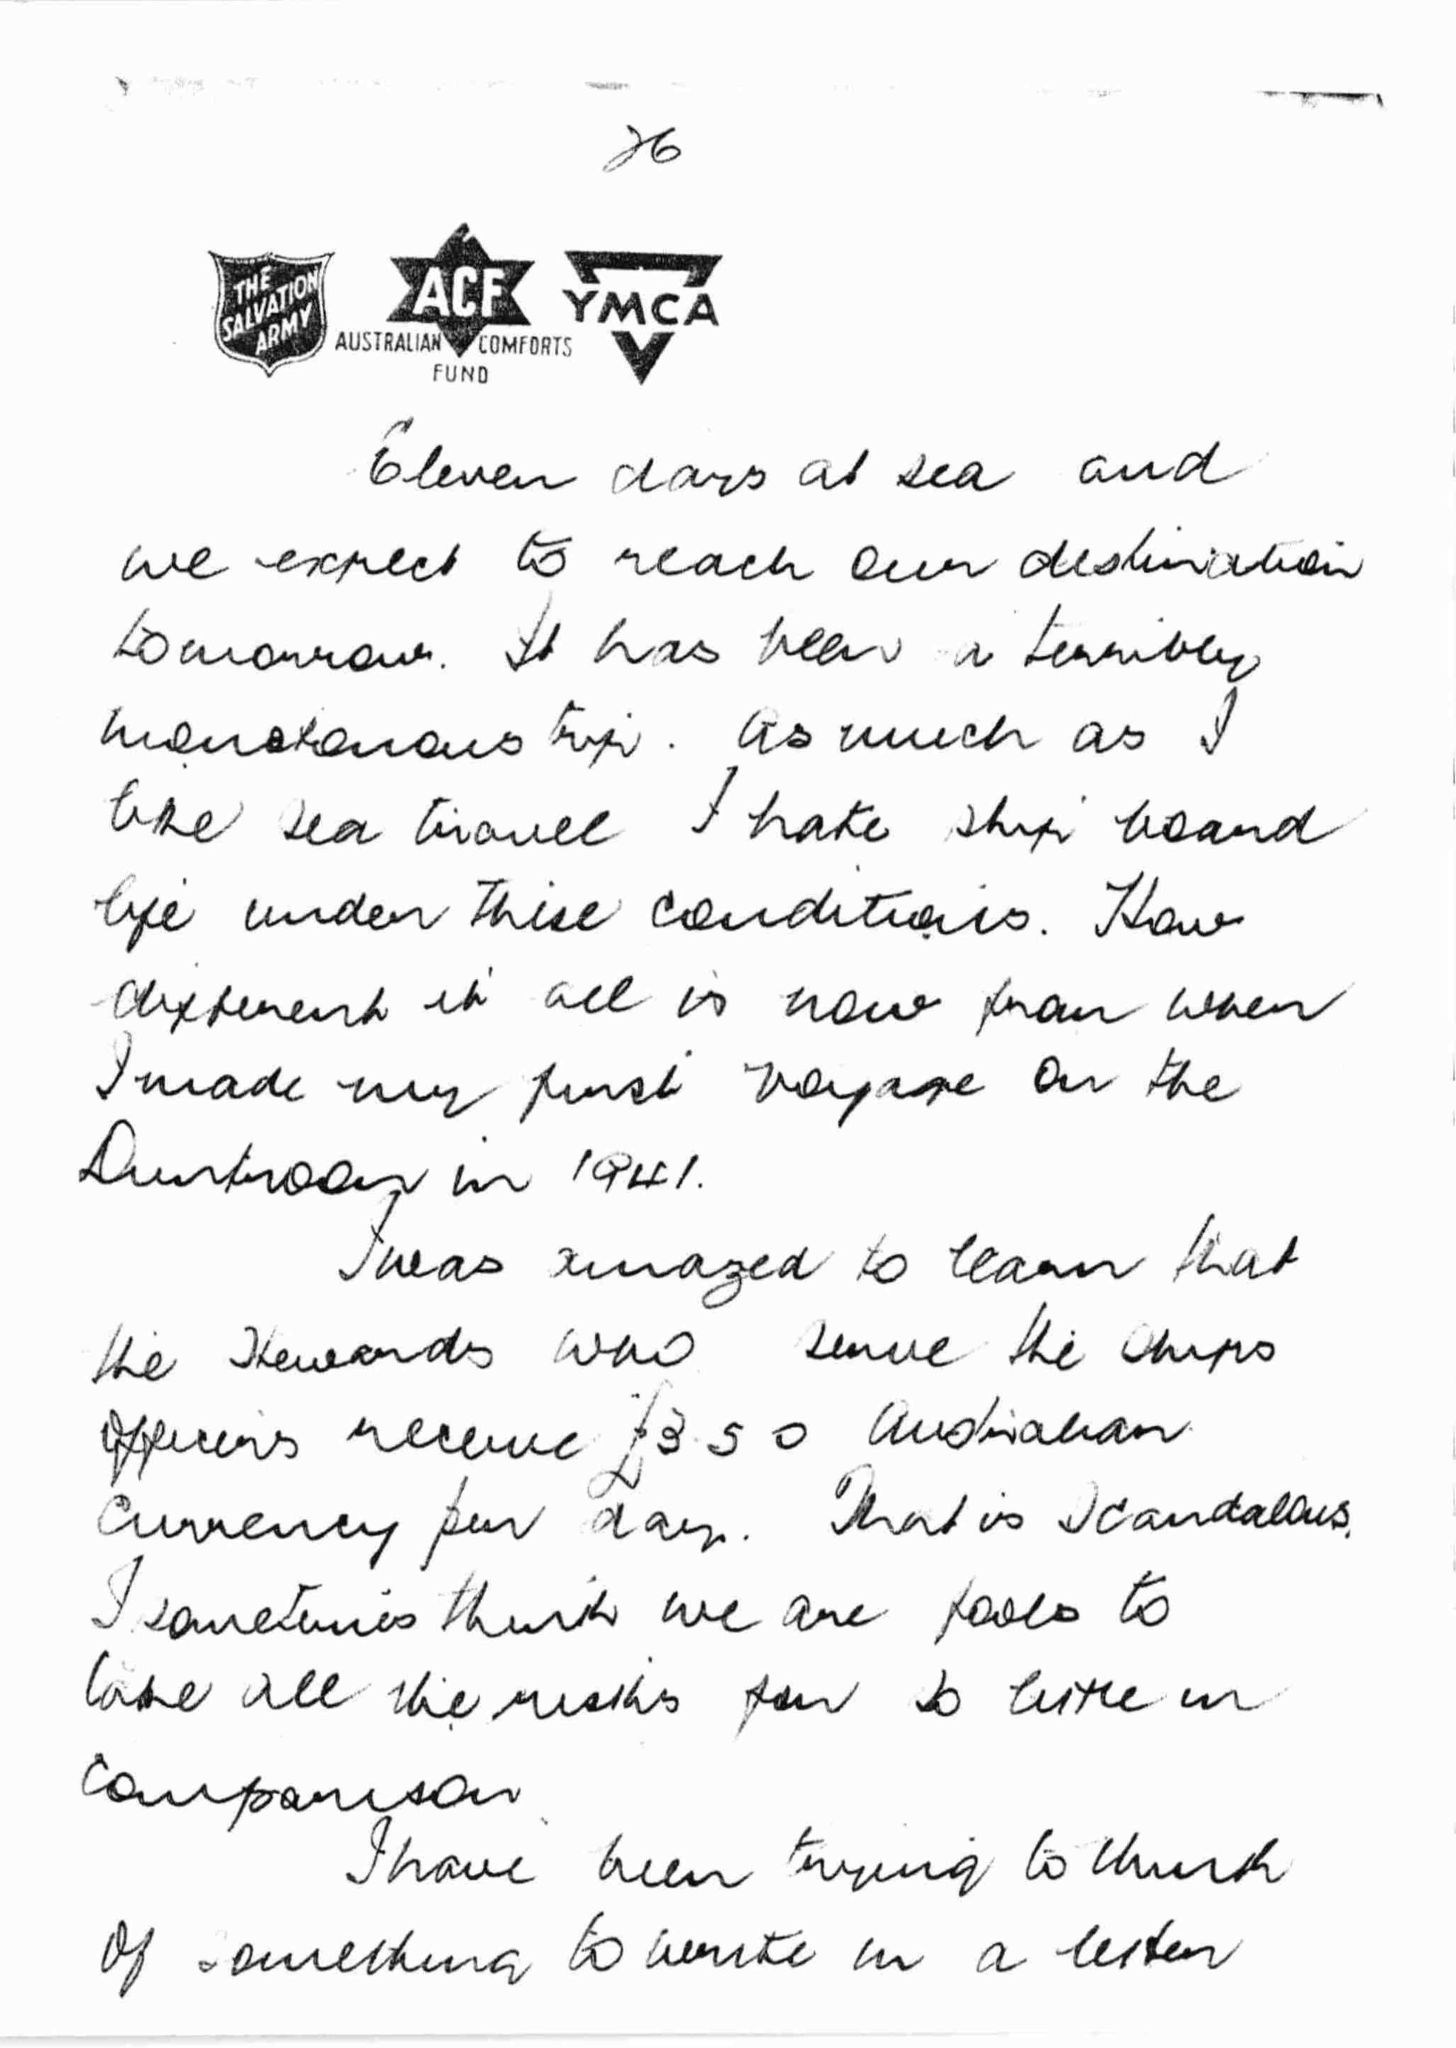 26
THE SALVATION ARMY
ACF
AUSTRALIAN COMFORTS FUND
YMCA
Eleven days at sea and
we expect to reach our destination
tomorrow. It has been a terribly
monotonous trip. As much as I
like sea travel I hate ship board
life under these conditions. How
different it all is now from when
I made my first voyage on the
Duntroon in 1941.
I was amazed to learn that
the stewards who serve the ships
officers receive £350 Australian
currency per day. That is scandalous.
I sometimes think we are fools to
take all the risks for so little in
comparison
I have been trying to think
of something to write in a letter